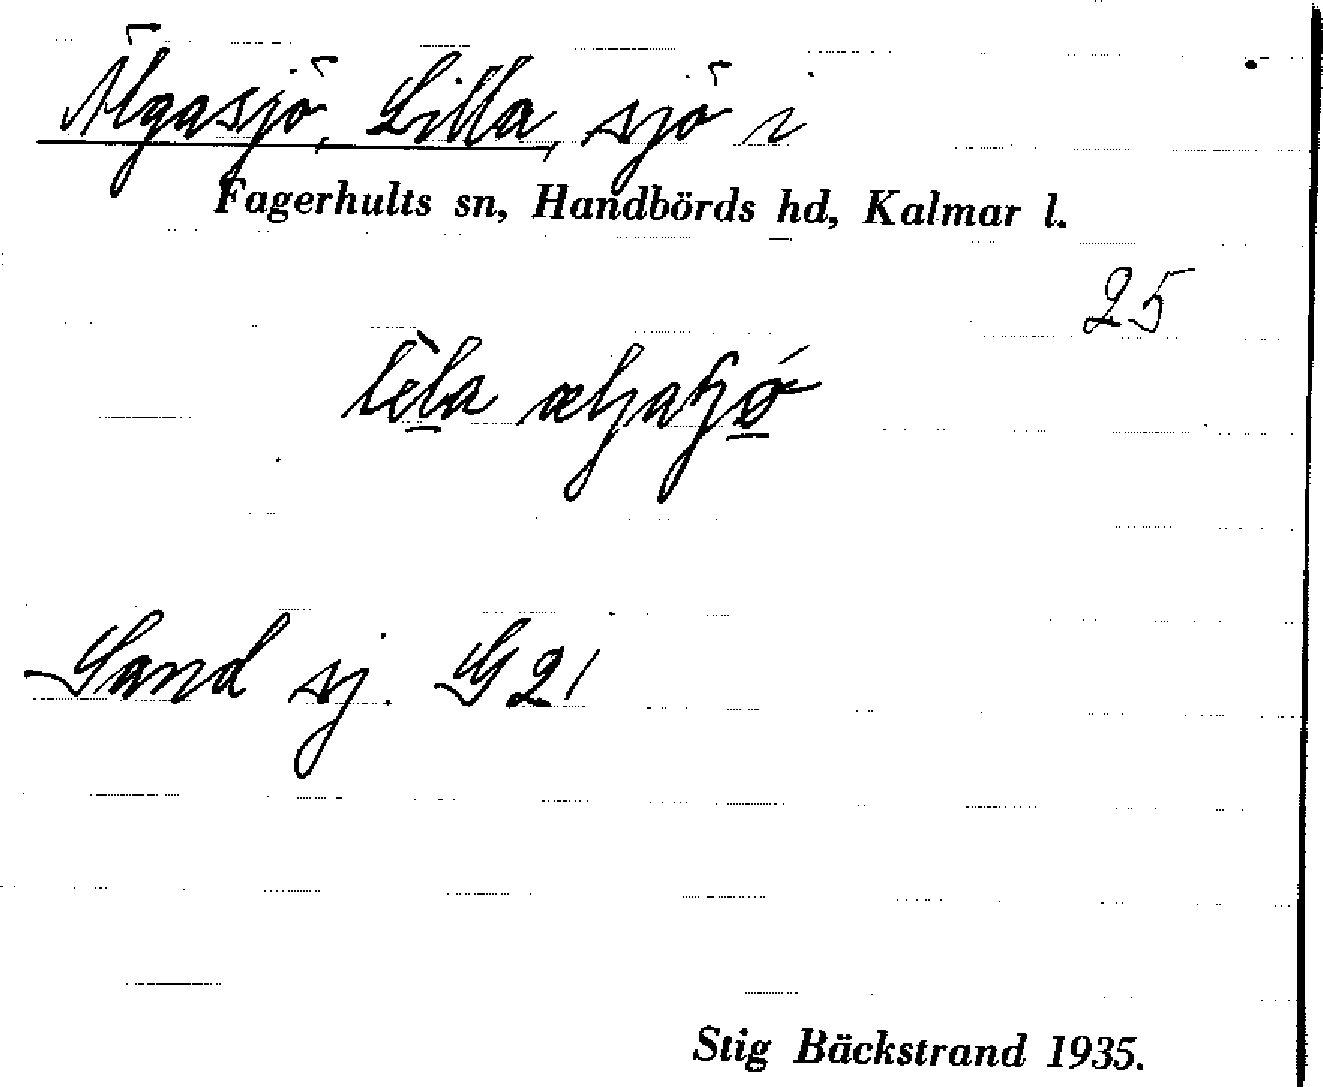 Älgasjö, Lilla, sjö i
Fagerhults sn, Handbörds hd, Kalmar l.
25
Sand sj. G21
Stig Bäckstrand 1935.